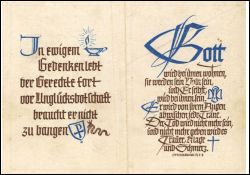 In ewigem
Gedenken lebt
der Gerechte fort
vor Unglücksbotschaft
braucht er nicht
zu bangen
Gott
wird bei ihnen wohnen,
sie werden sein Volk sein,
und Er selbst
wird bei ihnen sein.
Er wird von ihren Augen
abwischen jede Träne.
Der Tod wird nicht mehr sein,
und nicht mehr geben wird es
Trauer, Klage
und Schmerz.